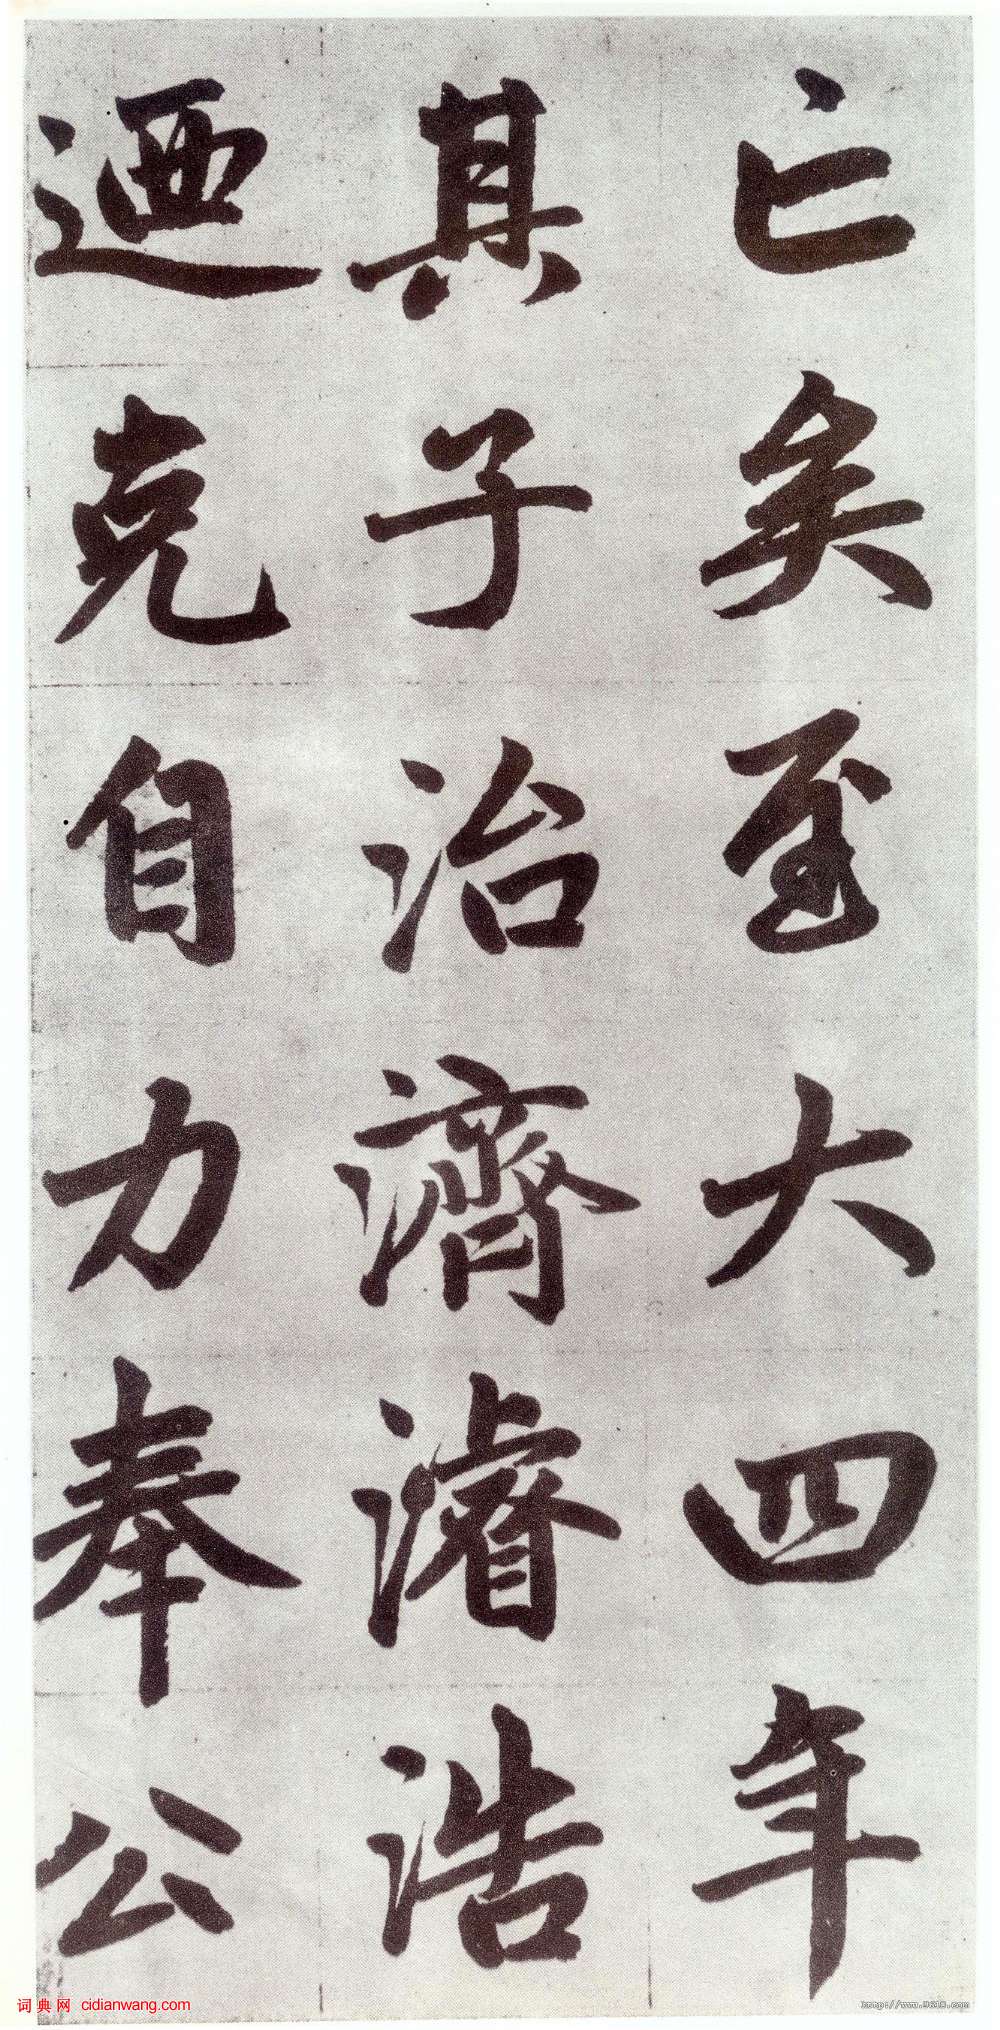 亡矣至大四年
其子治濟濬浩
迺克自力奉公
词典网 cidianwang.com
http://www.9610.com